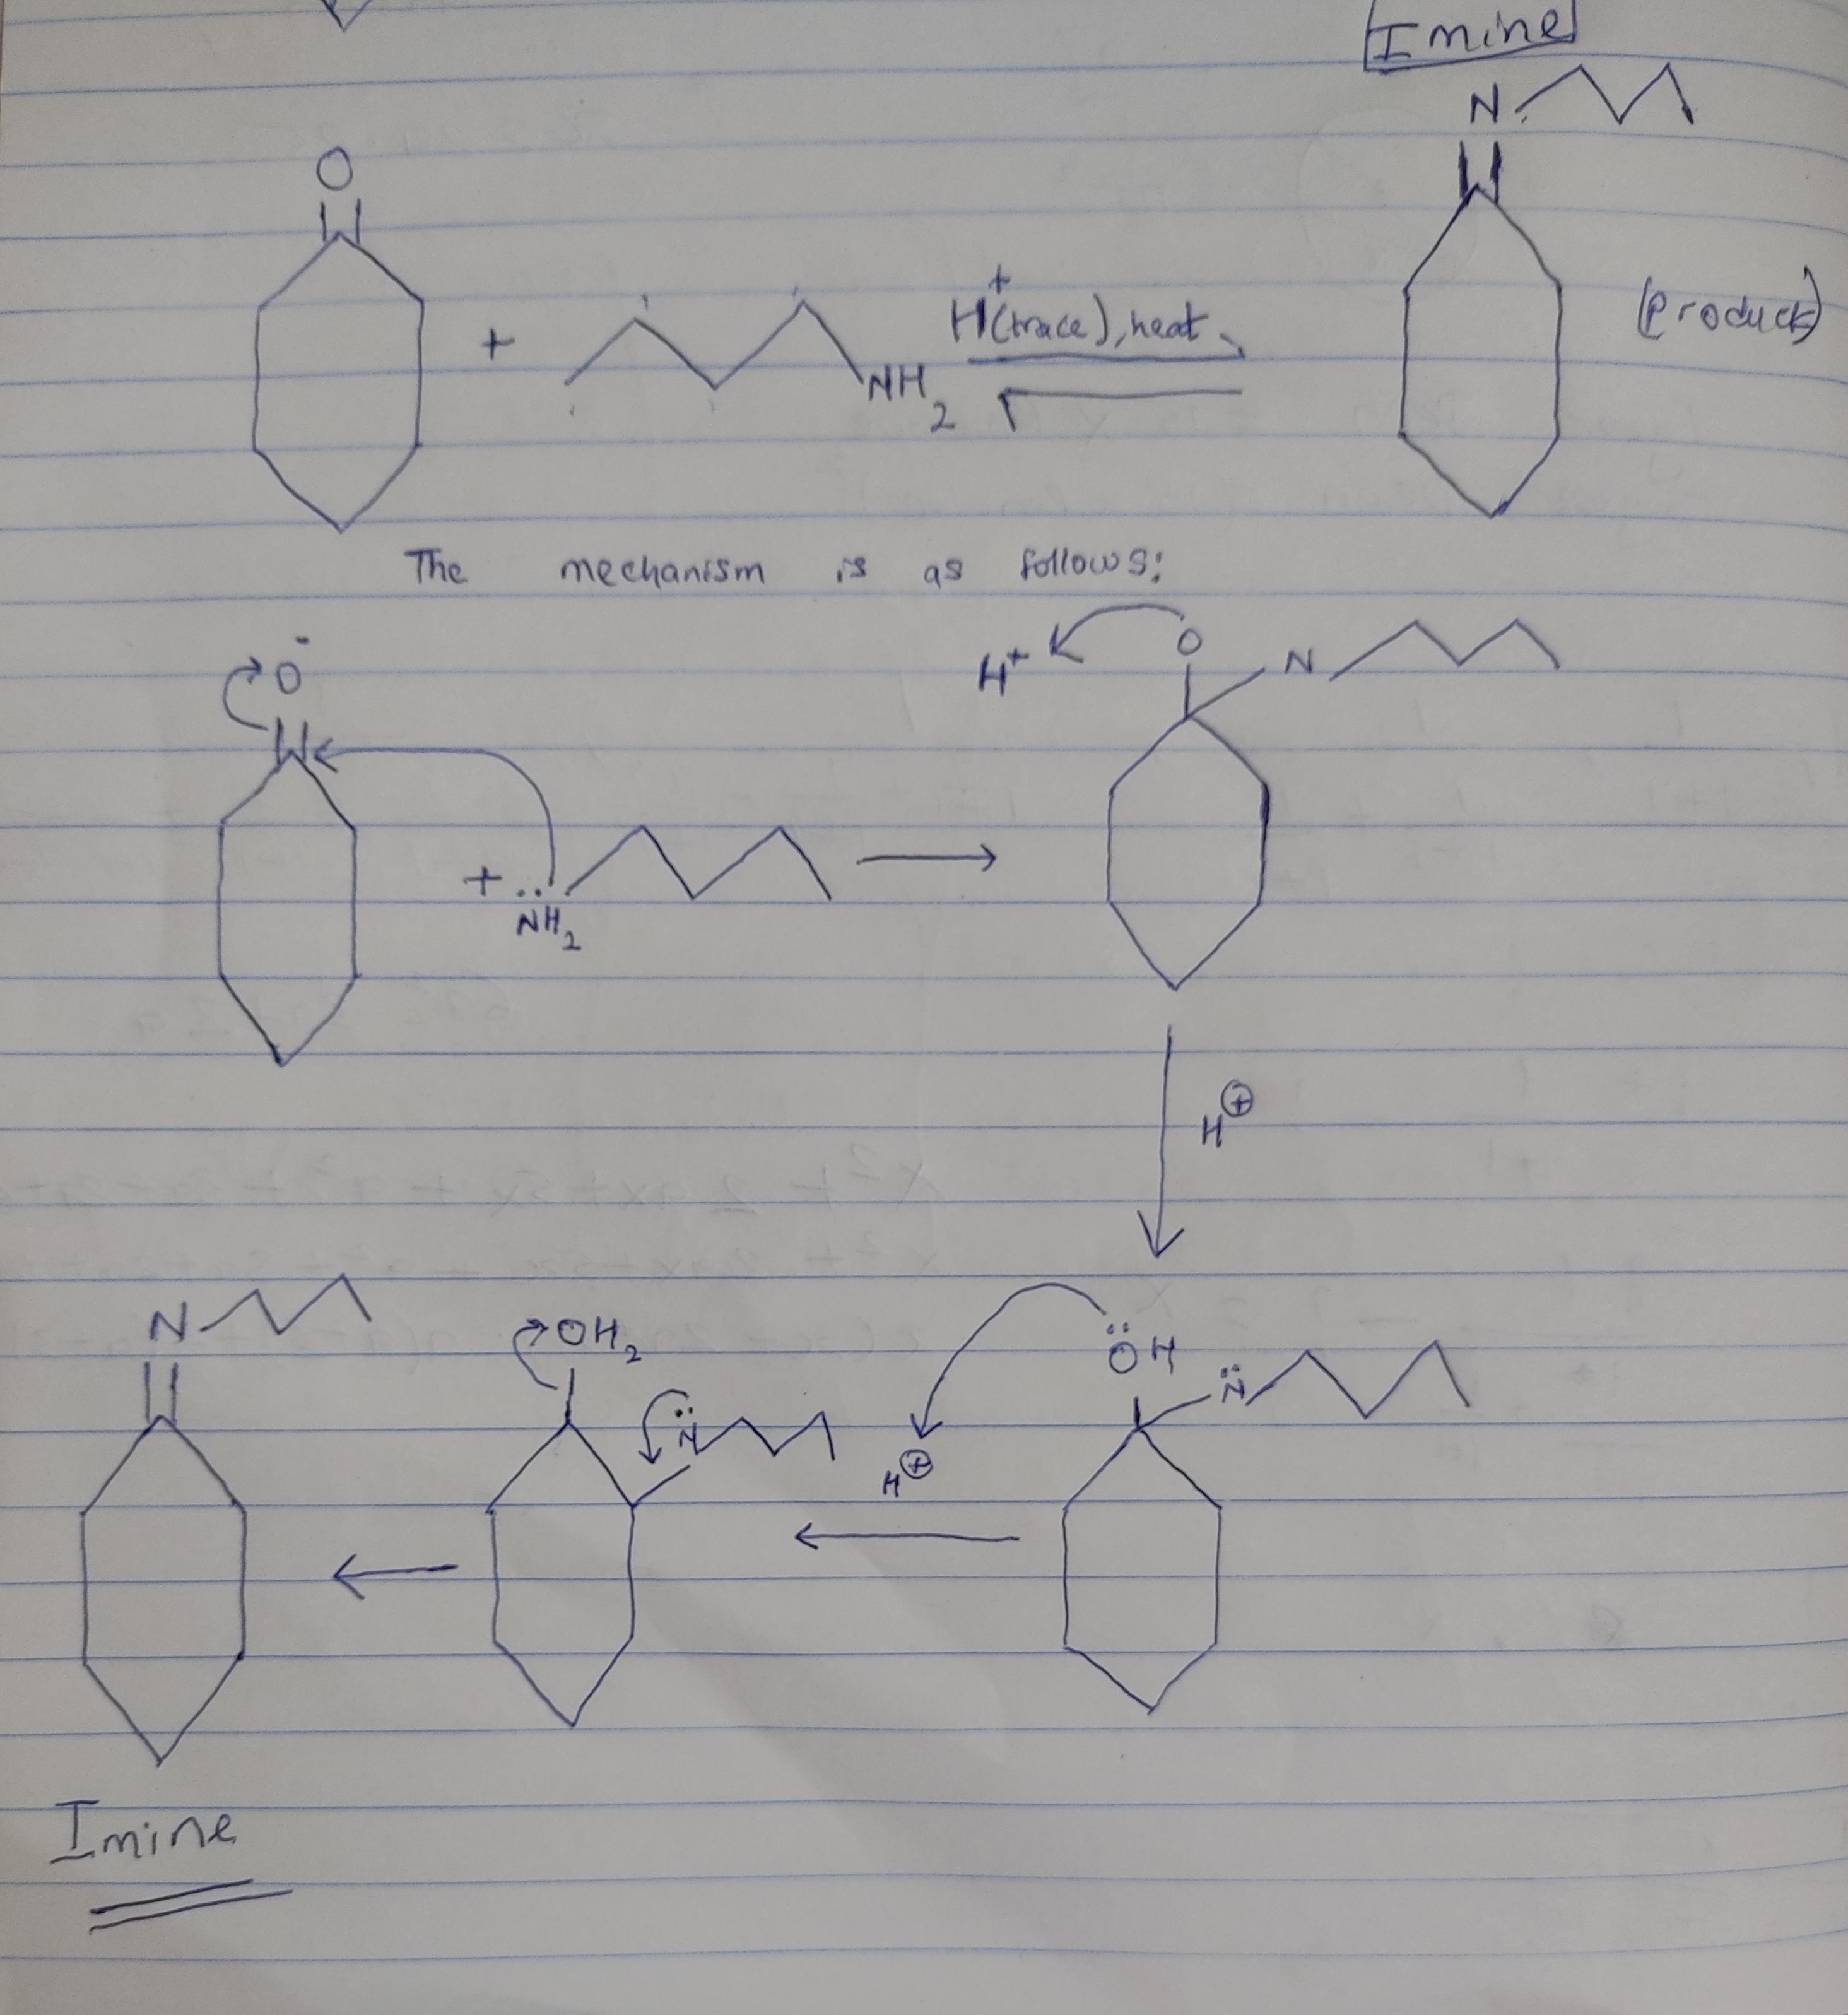 Imine
N
O
+
NH2
H+(trace), heat
(Product)
The mechanism is as follows:
O-
+ ..
NH2
H+
O
N
H⊕
N
OH2
N̈
H⊕
ÖH
N̈
Imine